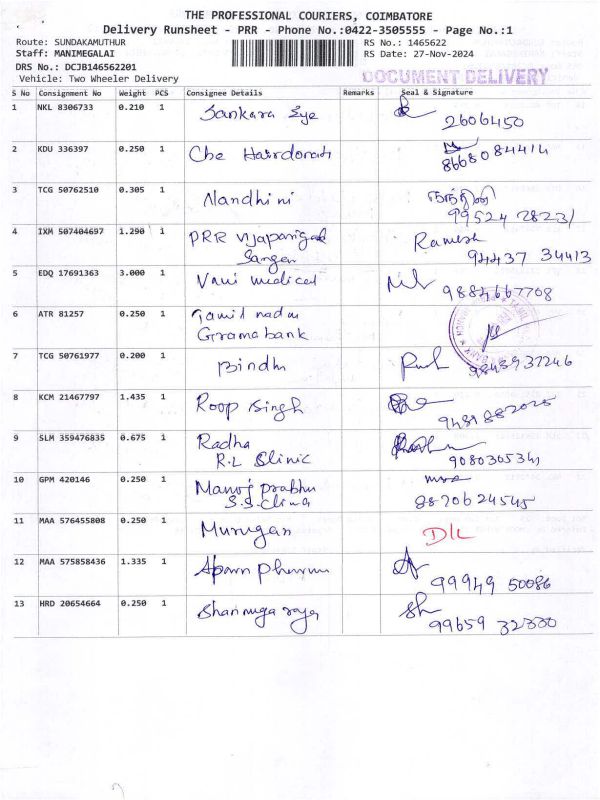 THE PROFESSIONAL COURIERS, COIMBATORE
Delivery Runsheet - PRR - Phone No.:0422-3505555 - Page No.:1
Route: SUNDAKAMUTHUR RS No.: 1465622
Staff: MANIMEGALAI RS Date: 27-Nov-2024
DRS No.: DCJB146562201
Vehicle: Two Wheeler Delivery
DOCUMENT DELIVERY
S No Consignment No Weight PCS Consignee Details Remarks Seal & Signature
1 NKL 8306733 0.210 1 Sankara Eye 2606450
2 KDU 336397 0.250 1 Che 8668084414
3 TCG 50762510 0.305 1 Nandhini நந்தினி
99524 28231
4 IXM 507404697 1.290 1 PRR Ramesh
94437 34413
5 EDQ 17691363 3.000 1 Vani medical 9884667708
6 ATR 81257 0.250 1 Tamil nadu
Grama bank
7 TCG 50761977 0.200 1 Bindhu 9843937246
8 KCM 21467797 1.435 1 Roop Singh
9 SLM 359476835 0.675 1 Radha
R.L Clinic 9080305341
10 GPM 420146 0.250 1 Manoj prabhu
8870624545
11 MAA 576455808 0.250 1 Murugan D/L
12 MAA 575858436 1.335 1 99949 50086
13 HRD 20654664 0.250 1 Shanmuga raja sh
99659 32330